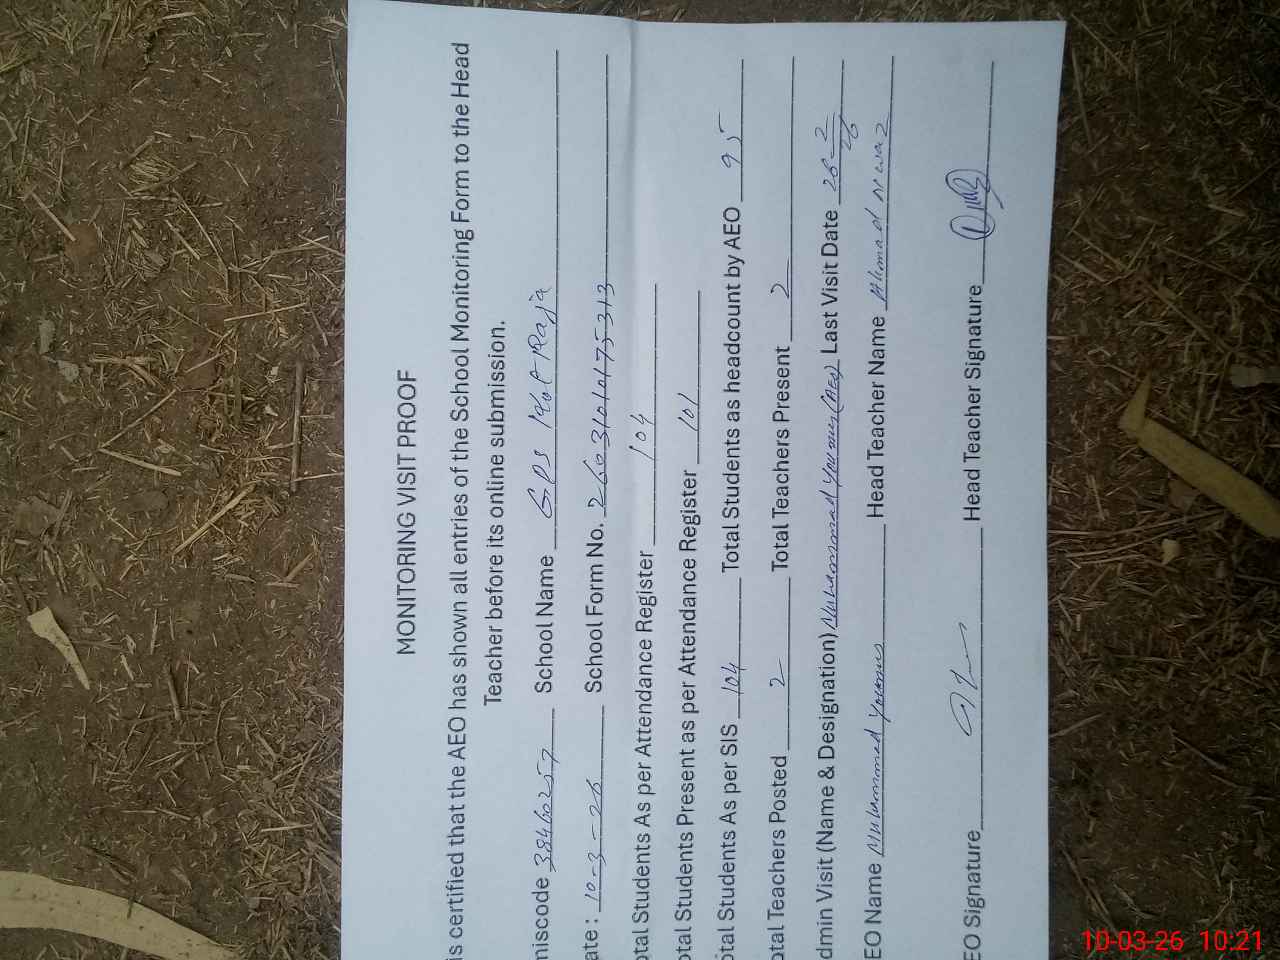 MONITORING VISIT PROOF
is certified that the AEO has shown all entries of the School Monitoring Form to the Head
Teacher before its online submission.
miscode 38460257 School Name GPS Kot Raja
ate : 10-3-26 School Form No. 26031010175313
otal Students As per Attendance Register 104
otal Students Present as per Attendance Register 101
otal Students As per SIS 104 Total Students as headcount by AEO 95
otal Teachers Posted 2 Total Teachers Present 2
dmin Visit (Name & Designation) Muhammad Younus (AEO) Last Visit Date 26-2-26
EO Name Muhammad Younus Head Teacher Name Ahmad Nawaz
EO Signature Head Teacher Signature
10-03-26 10:21